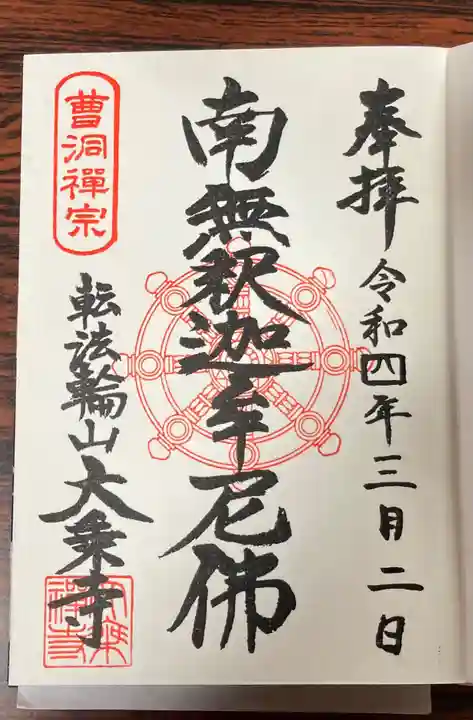 奉拝
令和四年三月二日
南無釈迦牟尼佛
曹洞禪宗
転法輪山大乗寺